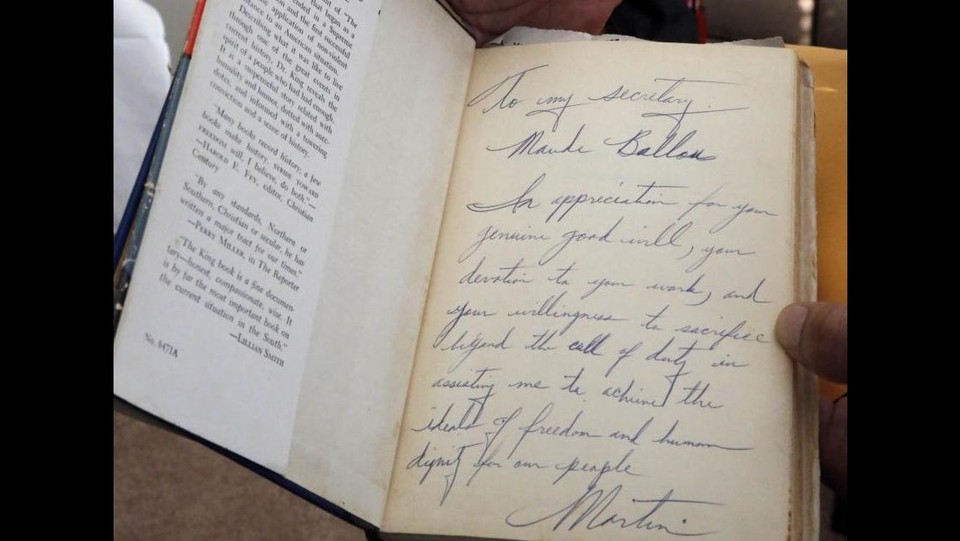 that began as a
ended in a Supreme
and the first successful
application of nonviolent
to an American situation.
Describing what it was like to live
through one of the great events in
current history, Dr. King reveals the
spirit of a people who had had enough.
It is a suspenseful story related with
humility and humor, dotted with anec-
dotes, and informed with a towering
conviction and a sense of history.
"Many books record history; a few
books make history. STRIDE TOWARD
FREEDOM will, I believe, do both."—
—HAROLD E. FEY, editor, Christian
Century
"By any standards, Northern or
Southern, Christian or secular, he has
written a major tract for our times."
—PERRY MILLER, in The Reporter
"The King book is a fine documen-
tary—honest, compassionate, wise. It
is by far the most important book on
the current situation in the South."
—LILLIAN SMITH
No. 8471A
To my secretary.
Maude Ballou
In appreciation for your
genuine good will, your
devotion to your work, and
your willingness to sacrifice
beyond the call of duty in
assisting me to achieve the
ideals of freedom and human
dignity for our people
Martin